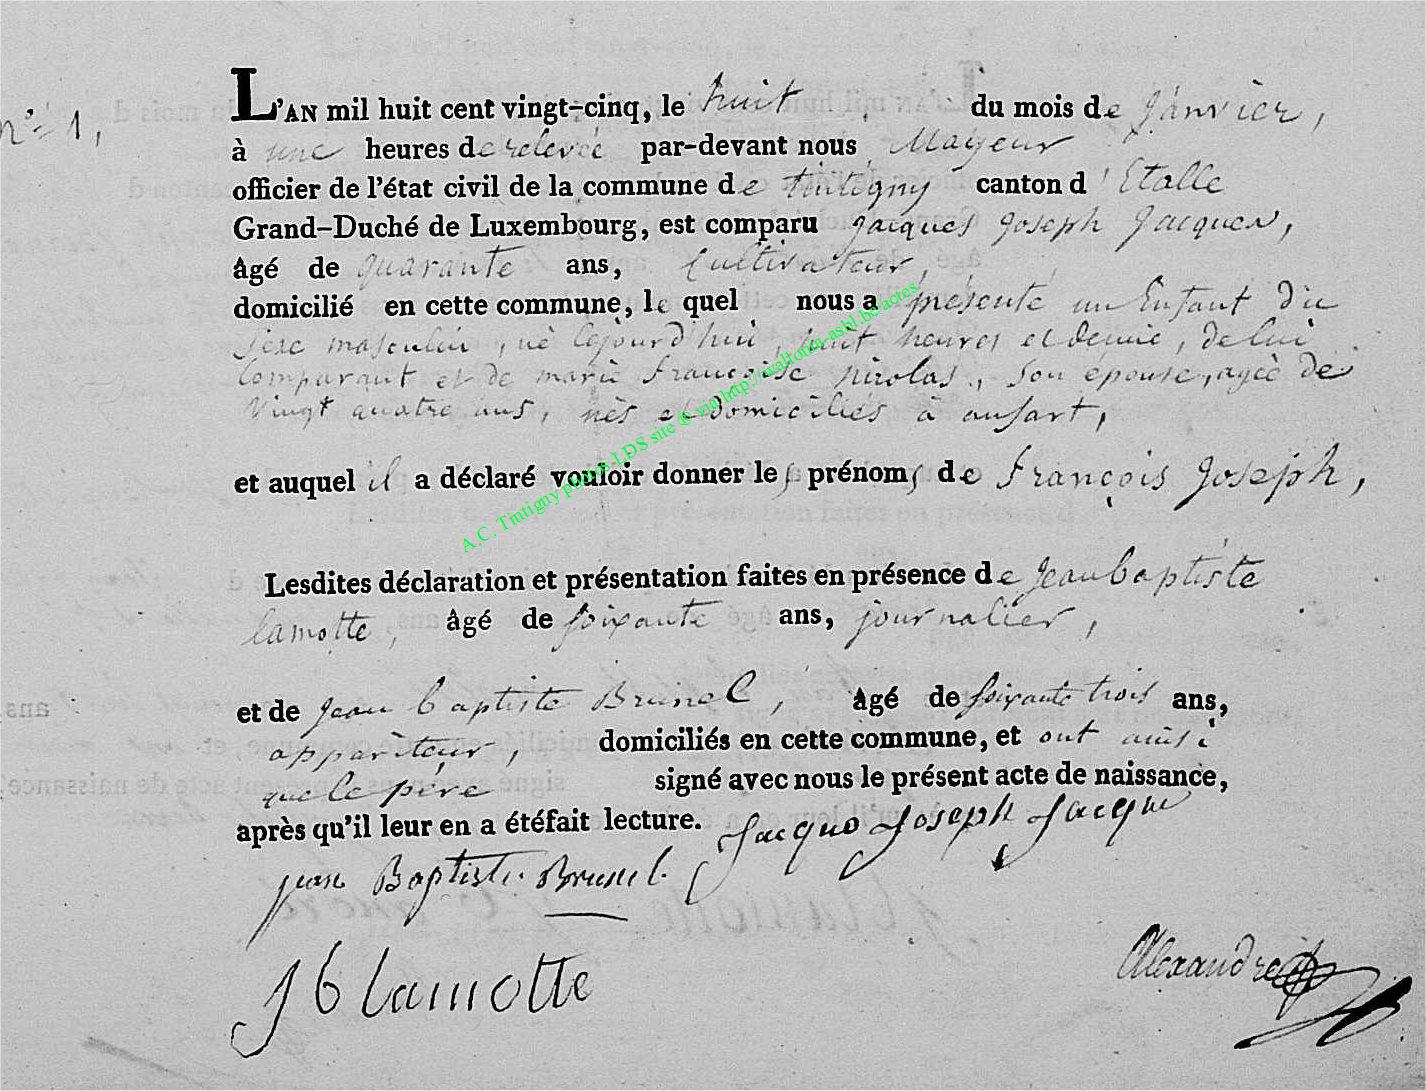 n.° 1,
L'AN mil huit cent vingt-cinq, le huit du mois de Janvier,
à une heures de relevée par-devant nous Mayeur
officier de l'état civil de la commune de tintigny canton d'Etalle
Grand-Duché de Luxembourg, est comparu Jacques Joseph Jacques,
âgé de quarante ans, Cultivateur,
domicilié en cette commune, le quel nous a présenté un Enfant du
sexe masculin, né cejourd'hui, huit heures et demie, de lui
Comparant et de marie françoise Nicolas, son épouse, agée de
Vingt quatre ans, nés et domiciliés à ansart,
et auquel il a déclaré vouloir donner les prénoms de françois Joseph,
Lesdites déclaration et présentation faites en présence de Jean baptiste
lamotte, âgé de soixante ans, journalier,
et de Jean baptiste Brunel, âgé de soixante trois ans,
appariteur, domiciliés en cette commune, et ont ainsi
que le père signé avec nous le présent acte de naissance,
après qu'il leur en a étéfait lecture. Jacque Joseph Jacque
jean Baptiste Brunel
J b lamotte
Alexandre
A.C. Tintigny photos LDS site © via http://wallonia-asbl.be/actes